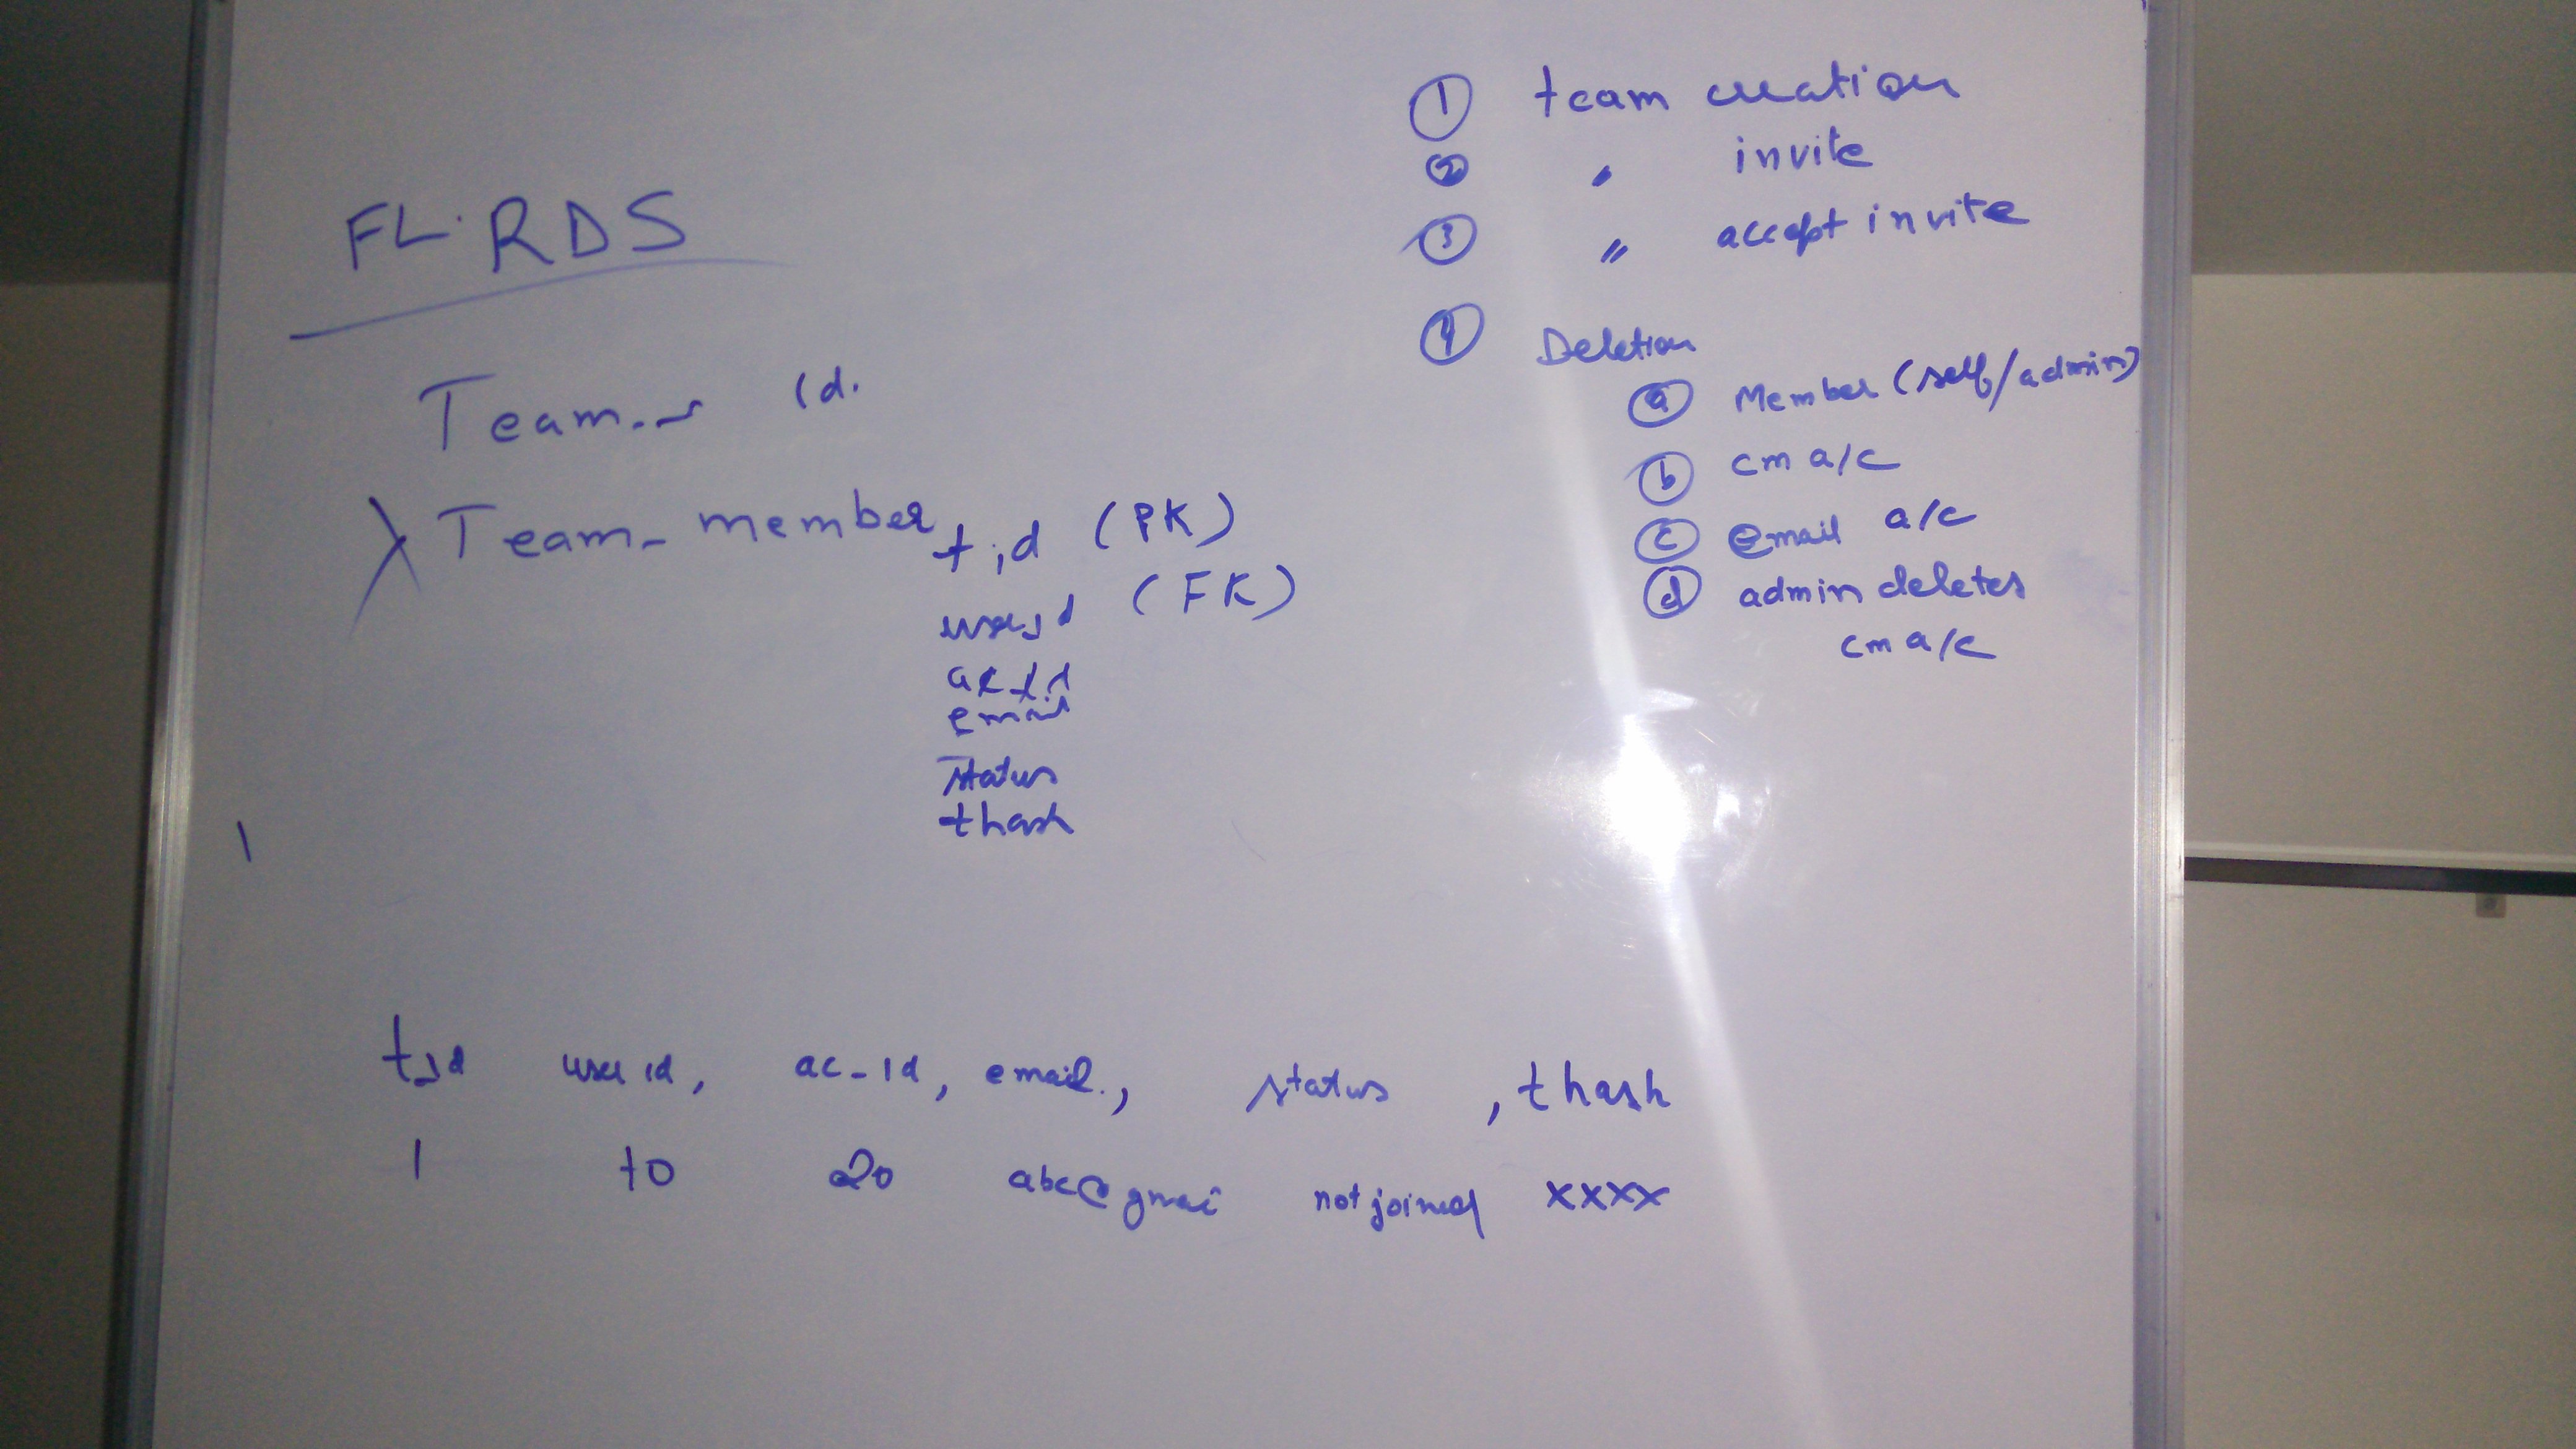 FL.RDS
Team_s id.
Team_member t_id (PK)
userid (FK)
ac_id
email
status
thash
① team creation
② " invite
③ " accept invite
④ Deletion
ⓐ Member (self/admin)
ⓑ cm a/c
ⓒ email a/c
ⓓ admin deletes
cm a/c
t_id user id, ac_id, email., status, thash
1 10 20 abc@gmai not joined xxxx